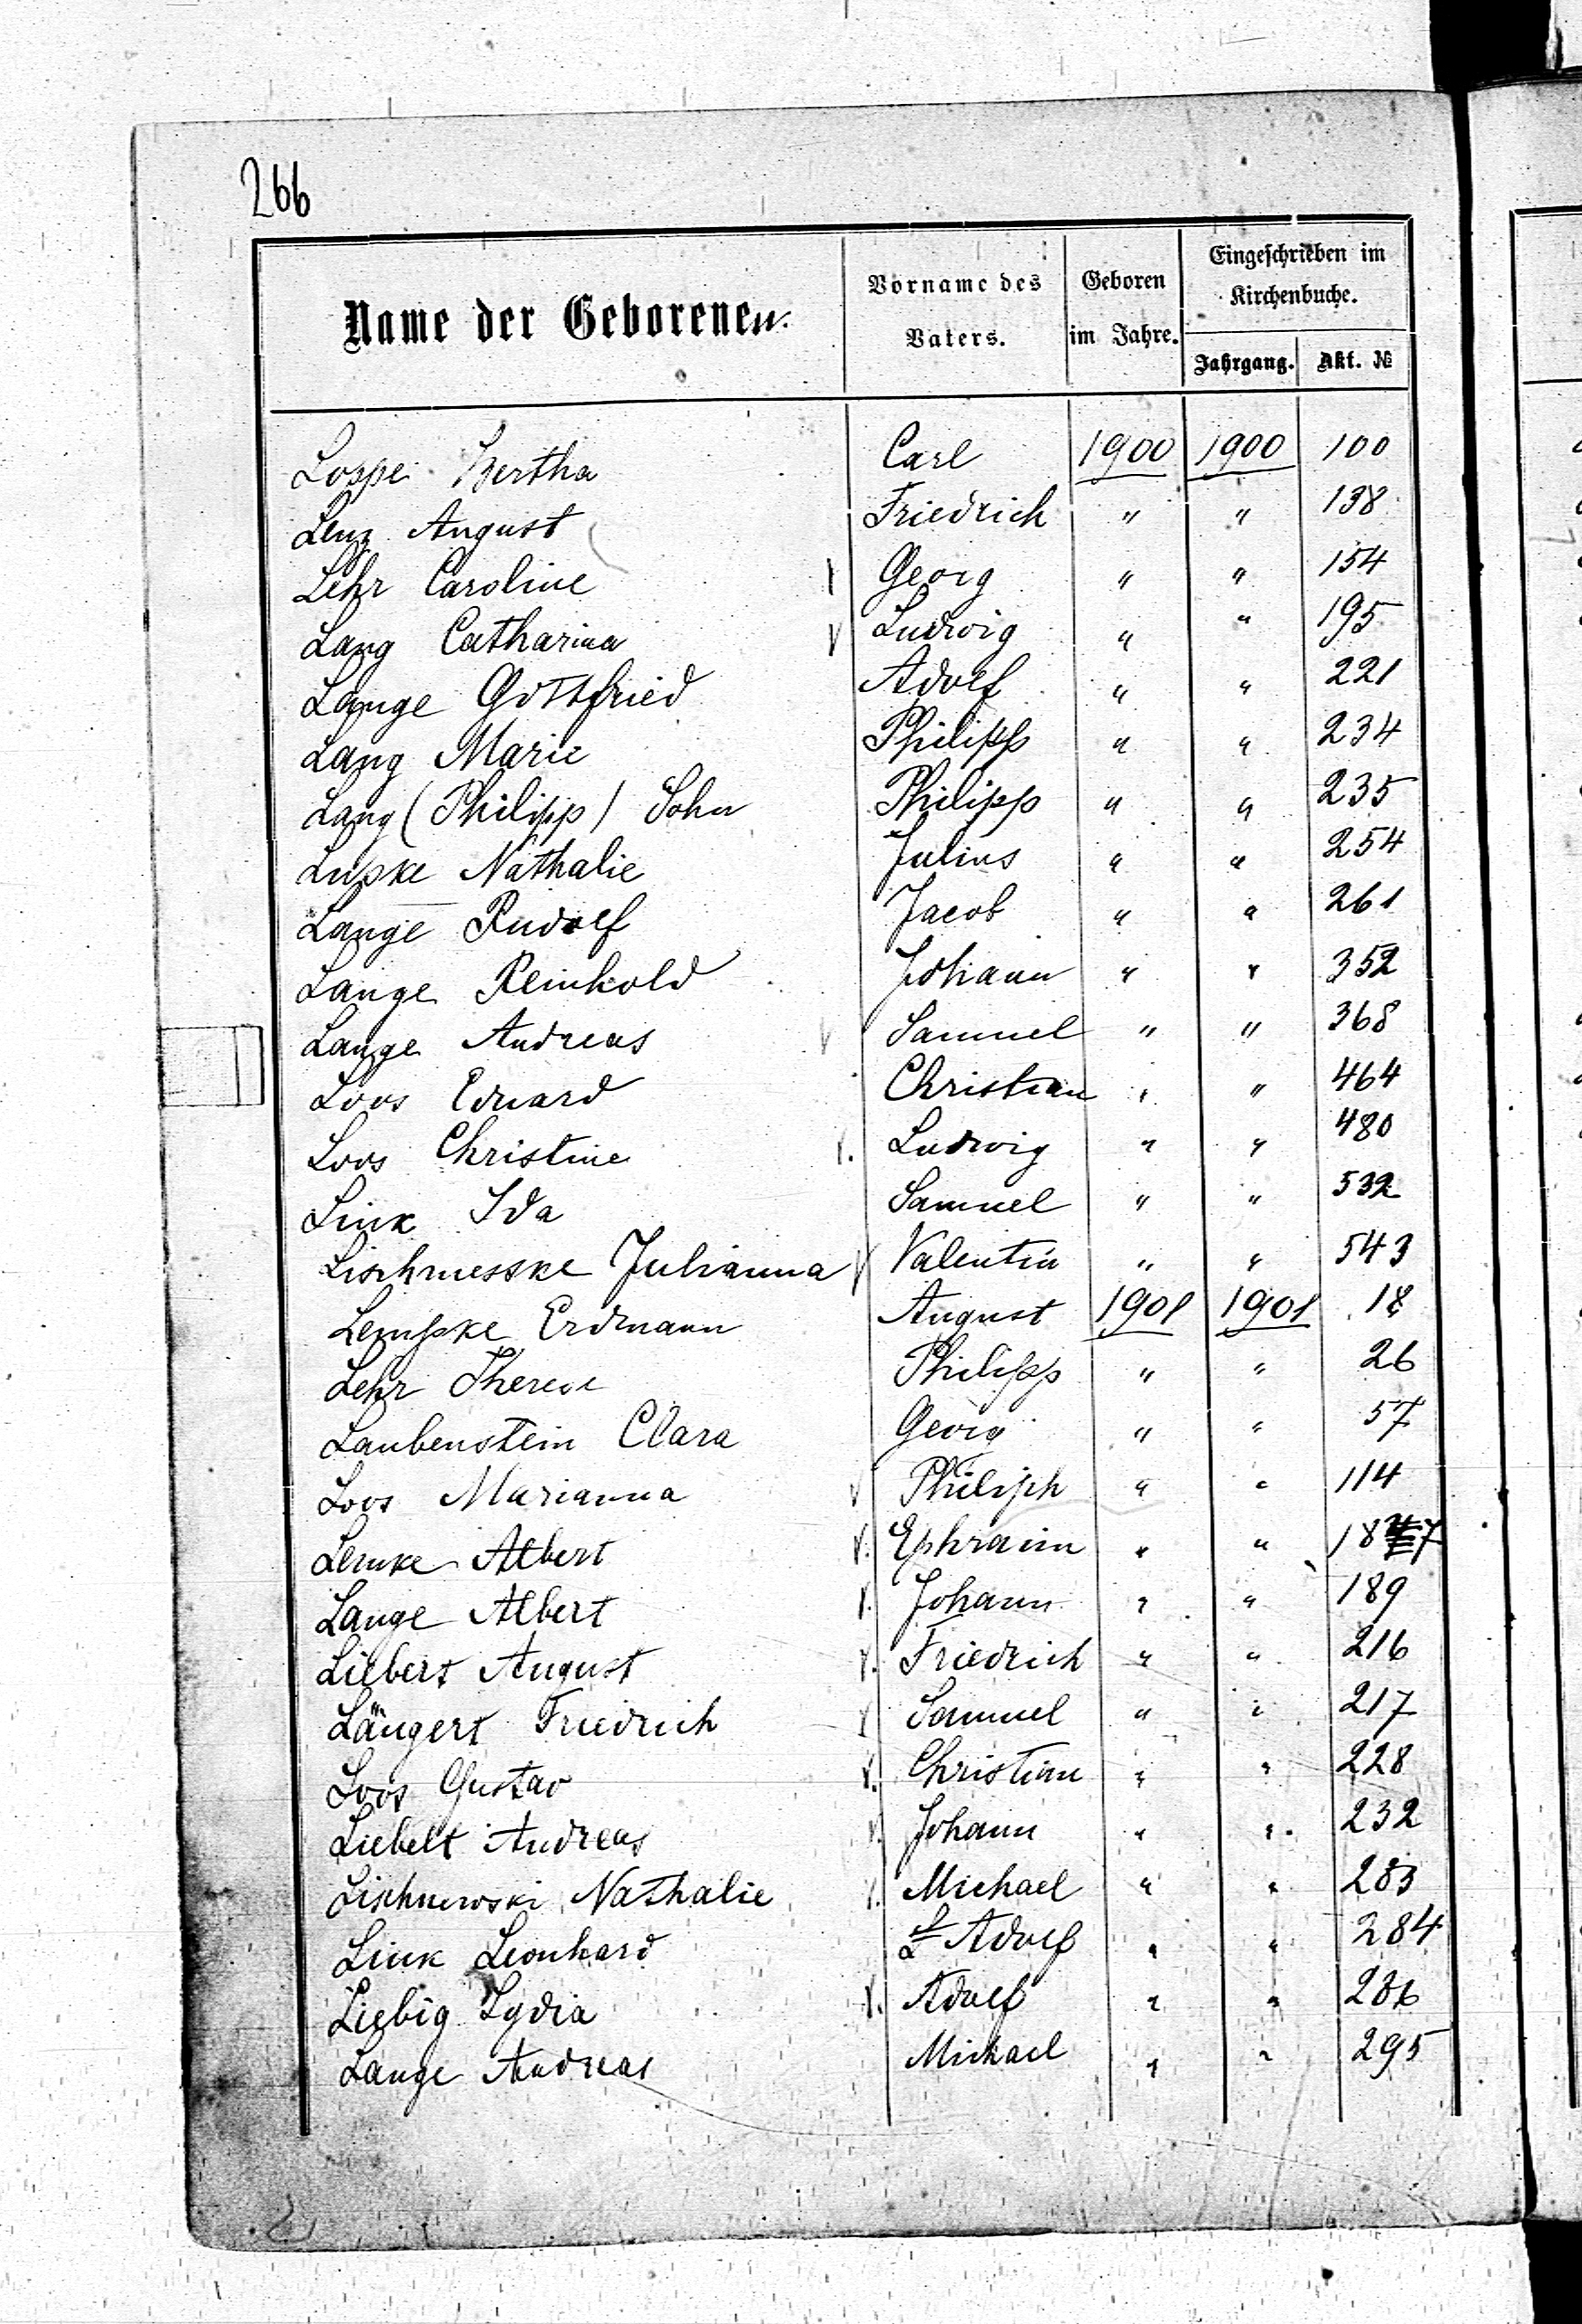 266
Name der Geborenen.
Vorname des Vaters.
Geboren im Jahre.
Eingeschrieben im Kirchenbuche.
Jahrgang. Akt. №
Loppe Bertha Carl 1900 1900 100
Lenz August Friedrich " " 138
Lehr Caroline Georg " " 154
Lang Catharina Ludwig " " 195
Lange Gottfried Adolf " " 221
Lang Marie Philipp " " 234
Lang (Philipp) Sohn Philipp " " 235
Lupske Nathalie Julius " " 254
Lange Rudolf Jacob " " 261
Lange Reinhold Johann " " 352
Lange Andreas Samuel " " 368
Loos Eduard Christian " " 464
Loos Christine Ludwig " " 480
Link Ida Samuel " " 532
Lischnesske Julianna Valentin " " 543
Lempke Erdmann August 1901 1901 18
Lehr Therese Philipp " " 26
Laubenstein Clara Georg " " 57
Loos Marianna Philiph " " 114
Lemke Albert Ephraim " " 187
Lange Albert Johann " " 189
Liebert August Friedrich " " 216
Längert Friedrich Samuel " " 217
Loos Gustav Christian " " 228
Liebelt Andreas Johann " " 232
Lischnewski Nathalie Michael " " 283
Link Leonhard Adolf " " 284
Liebig Lydia Adolf " " 286
Lange Andreas Michael " " 295